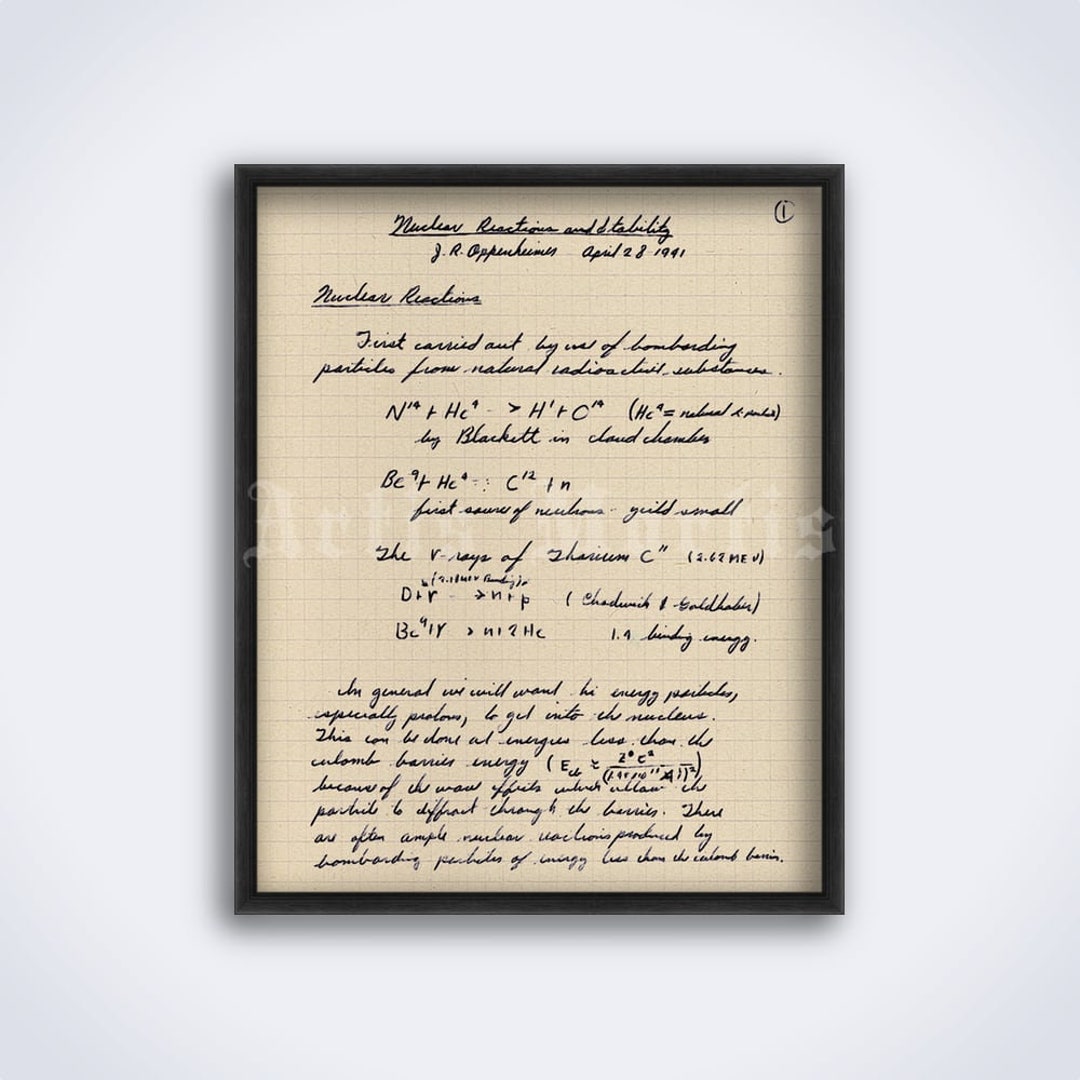 ①
Nuclear Reactions and Stability
J. R. Oppenheimer April 28 1941
Nuclear Reactions
First carried out by use of bombarding
particles from natural radioactive substances.
N¹⁴ + He⁴ -> H¹ + O¹⁴ (He⁴ = natural α particles)
by Blackett in cloud chamber
Be⁹ + He⁴ C¹² + n
first source of neutrons - yield small
The γ-rays of Thorium C" (2.62 MEV)
(2.18 MEV Binding)
D + γ -> n + p (Chadwick & Goldhaber)
Be⁹ + γ > n + 2 He 1.9 binding energy.
In general we will want hi energy particles,
especially protons, to get into the nucleus.
This can be done at energies less than the
culomb barrier energy (E ≈
because of the wave effects which allow the
particle to diffract through the barrier. There
are often ample nuclear reactions produced by
bombarding particles of energy less than the culomb barrier.